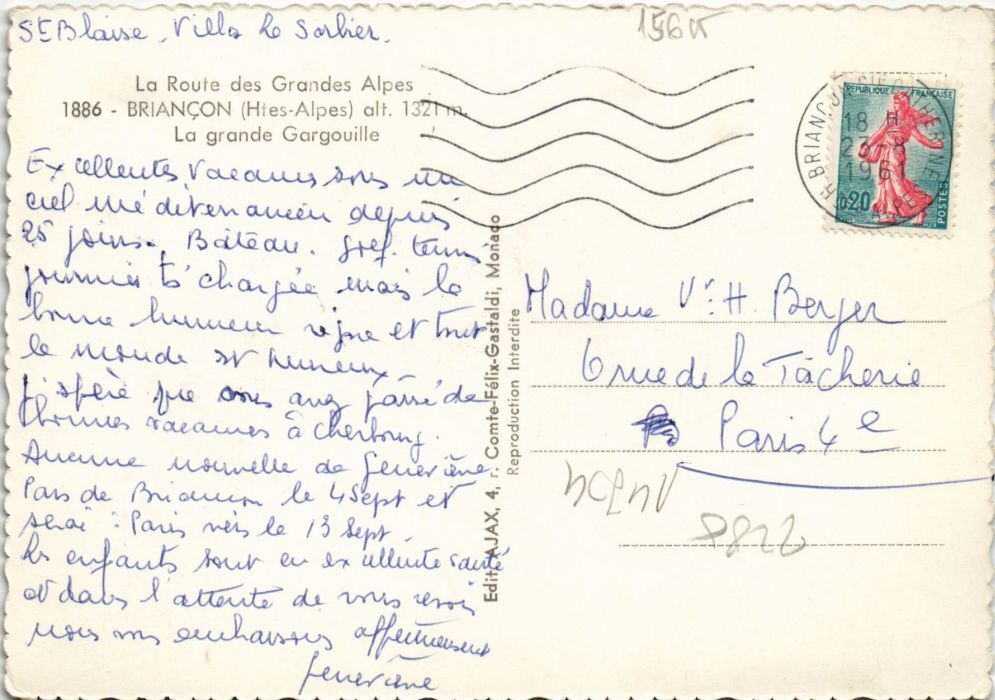 St Blaise. Villa le Sorbier.
156 K
La Route des Grandes Alpes
1886 - BRIANÇON (Htes-Alpes) alt. 1321 m.
La grande Gargouille
Excellentes vacances sous un
ciel méditerranéen depuis
25 jours. Bâteau. golf. tennis
journées ts chargée mais la
bonne humeur règne et tout
le monde est heureux
J'espère que vous avez passé de
bonnes vacances à Cherbourg.
Aucune nouvelle de Geneviève
Pars de Briancon le 4 Sept et
serai à Paris vers le 13 Sept.
Les enfants sont en excellente santé
et dans l'attente de vous revoir
nous vous embrassons affectueusement
Geneviève
Edit. AJAX, 4, r. Comte-Félix-Gastaldi, Monaco
Reproduction Interdite
REPUBLIQUE FRANÇAISE
0,20
POSTES
BRIANCON
18 H
23-8
1961
Madame Vve H. Berger
6 rue de la Tâcherie
Paris 4e